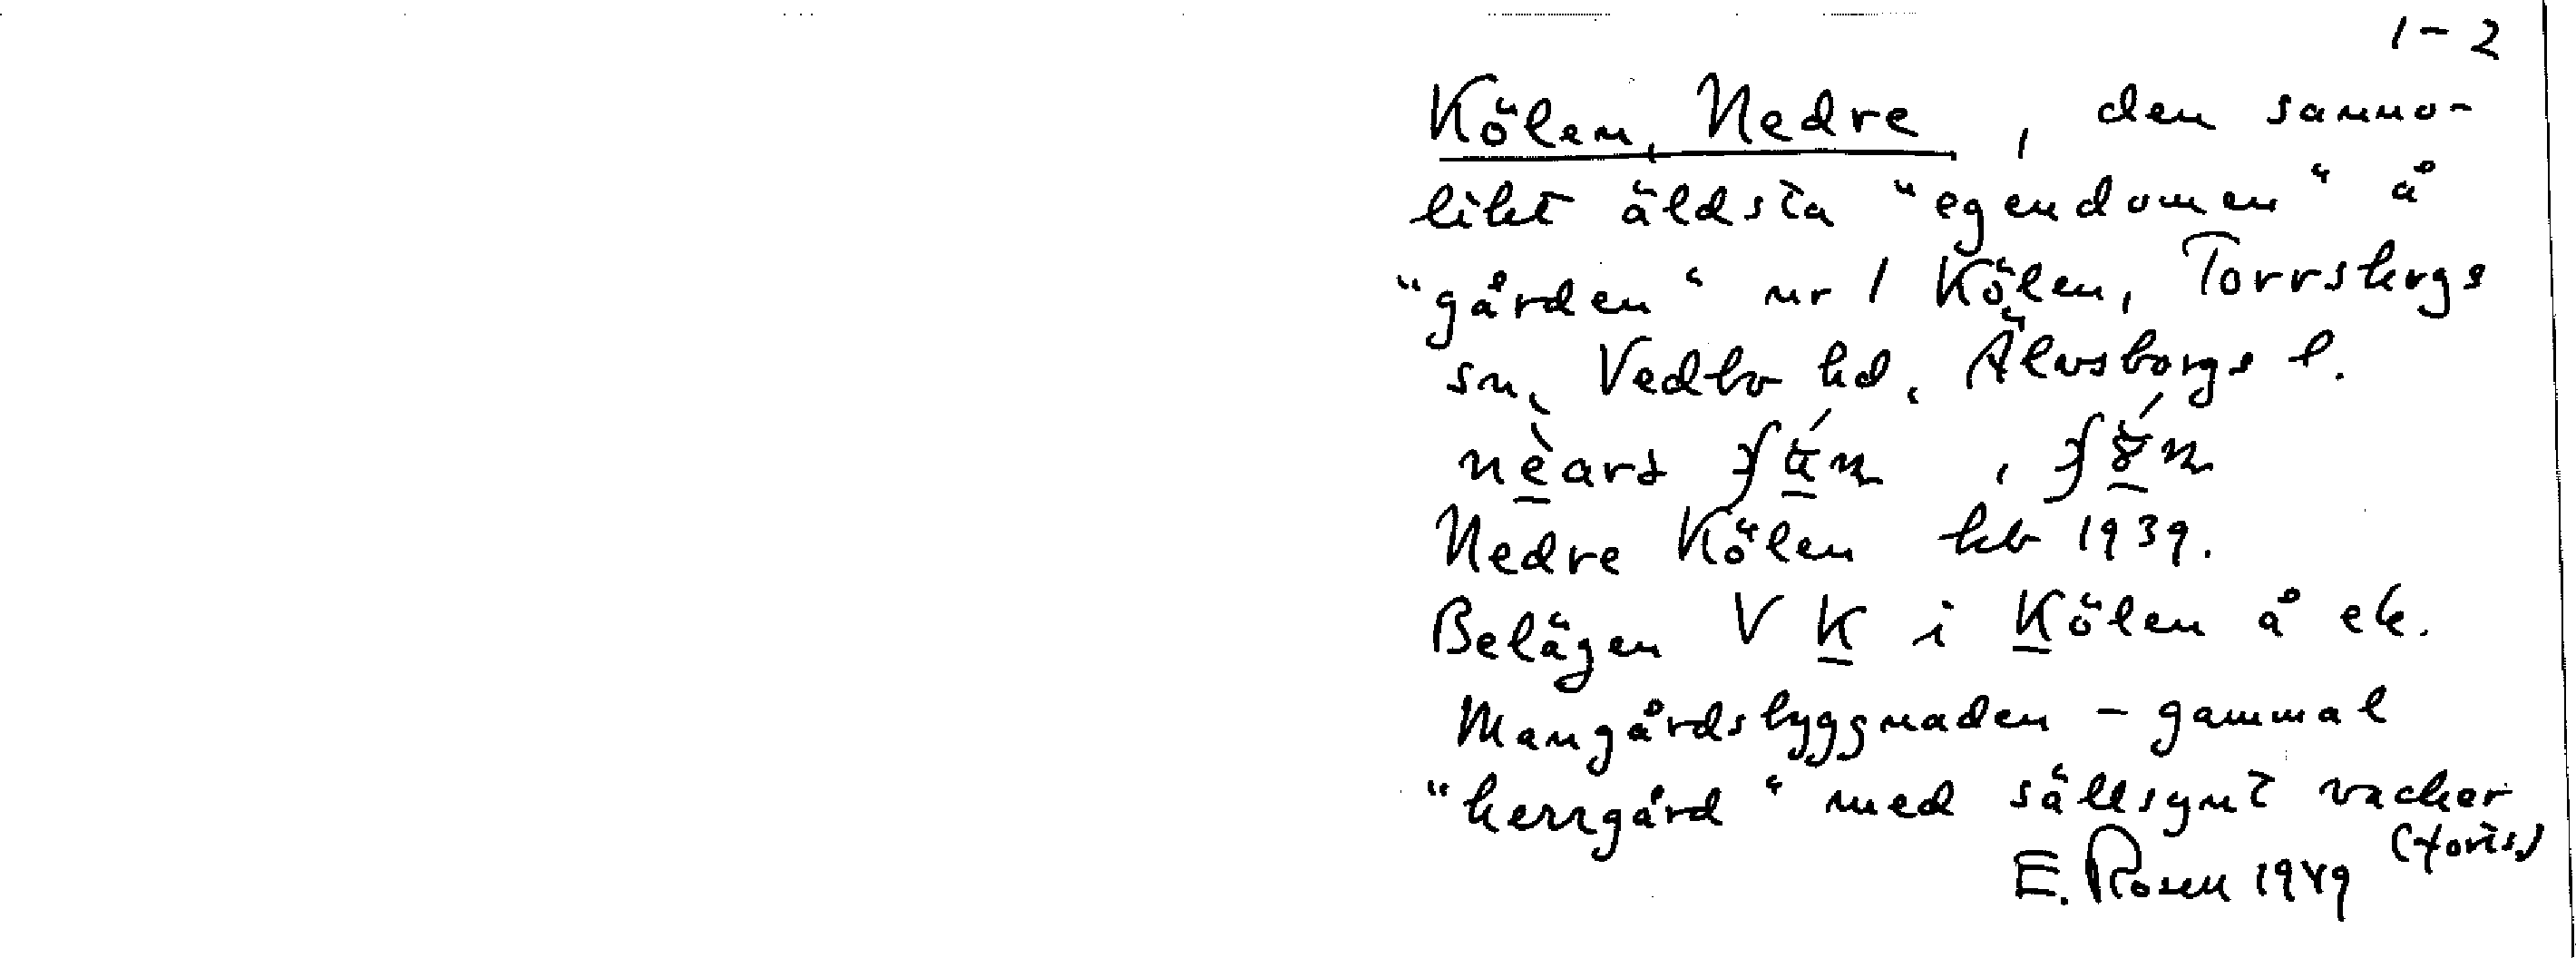 1-2
Kölen, Nedre, den sanno-
likt äldsta "egendomen" å
"gården" nr 1 Kölen, Torrskogs
sn, Vedbo hd, Älvsborgs l.
Nedre Kölen kb 1939.
Belägen V K i Kölen å ek.
Mangårdsbyggnaden - gammal
"herrgård" med sällsynt vacker
(forts.)
E. Rosell 1949